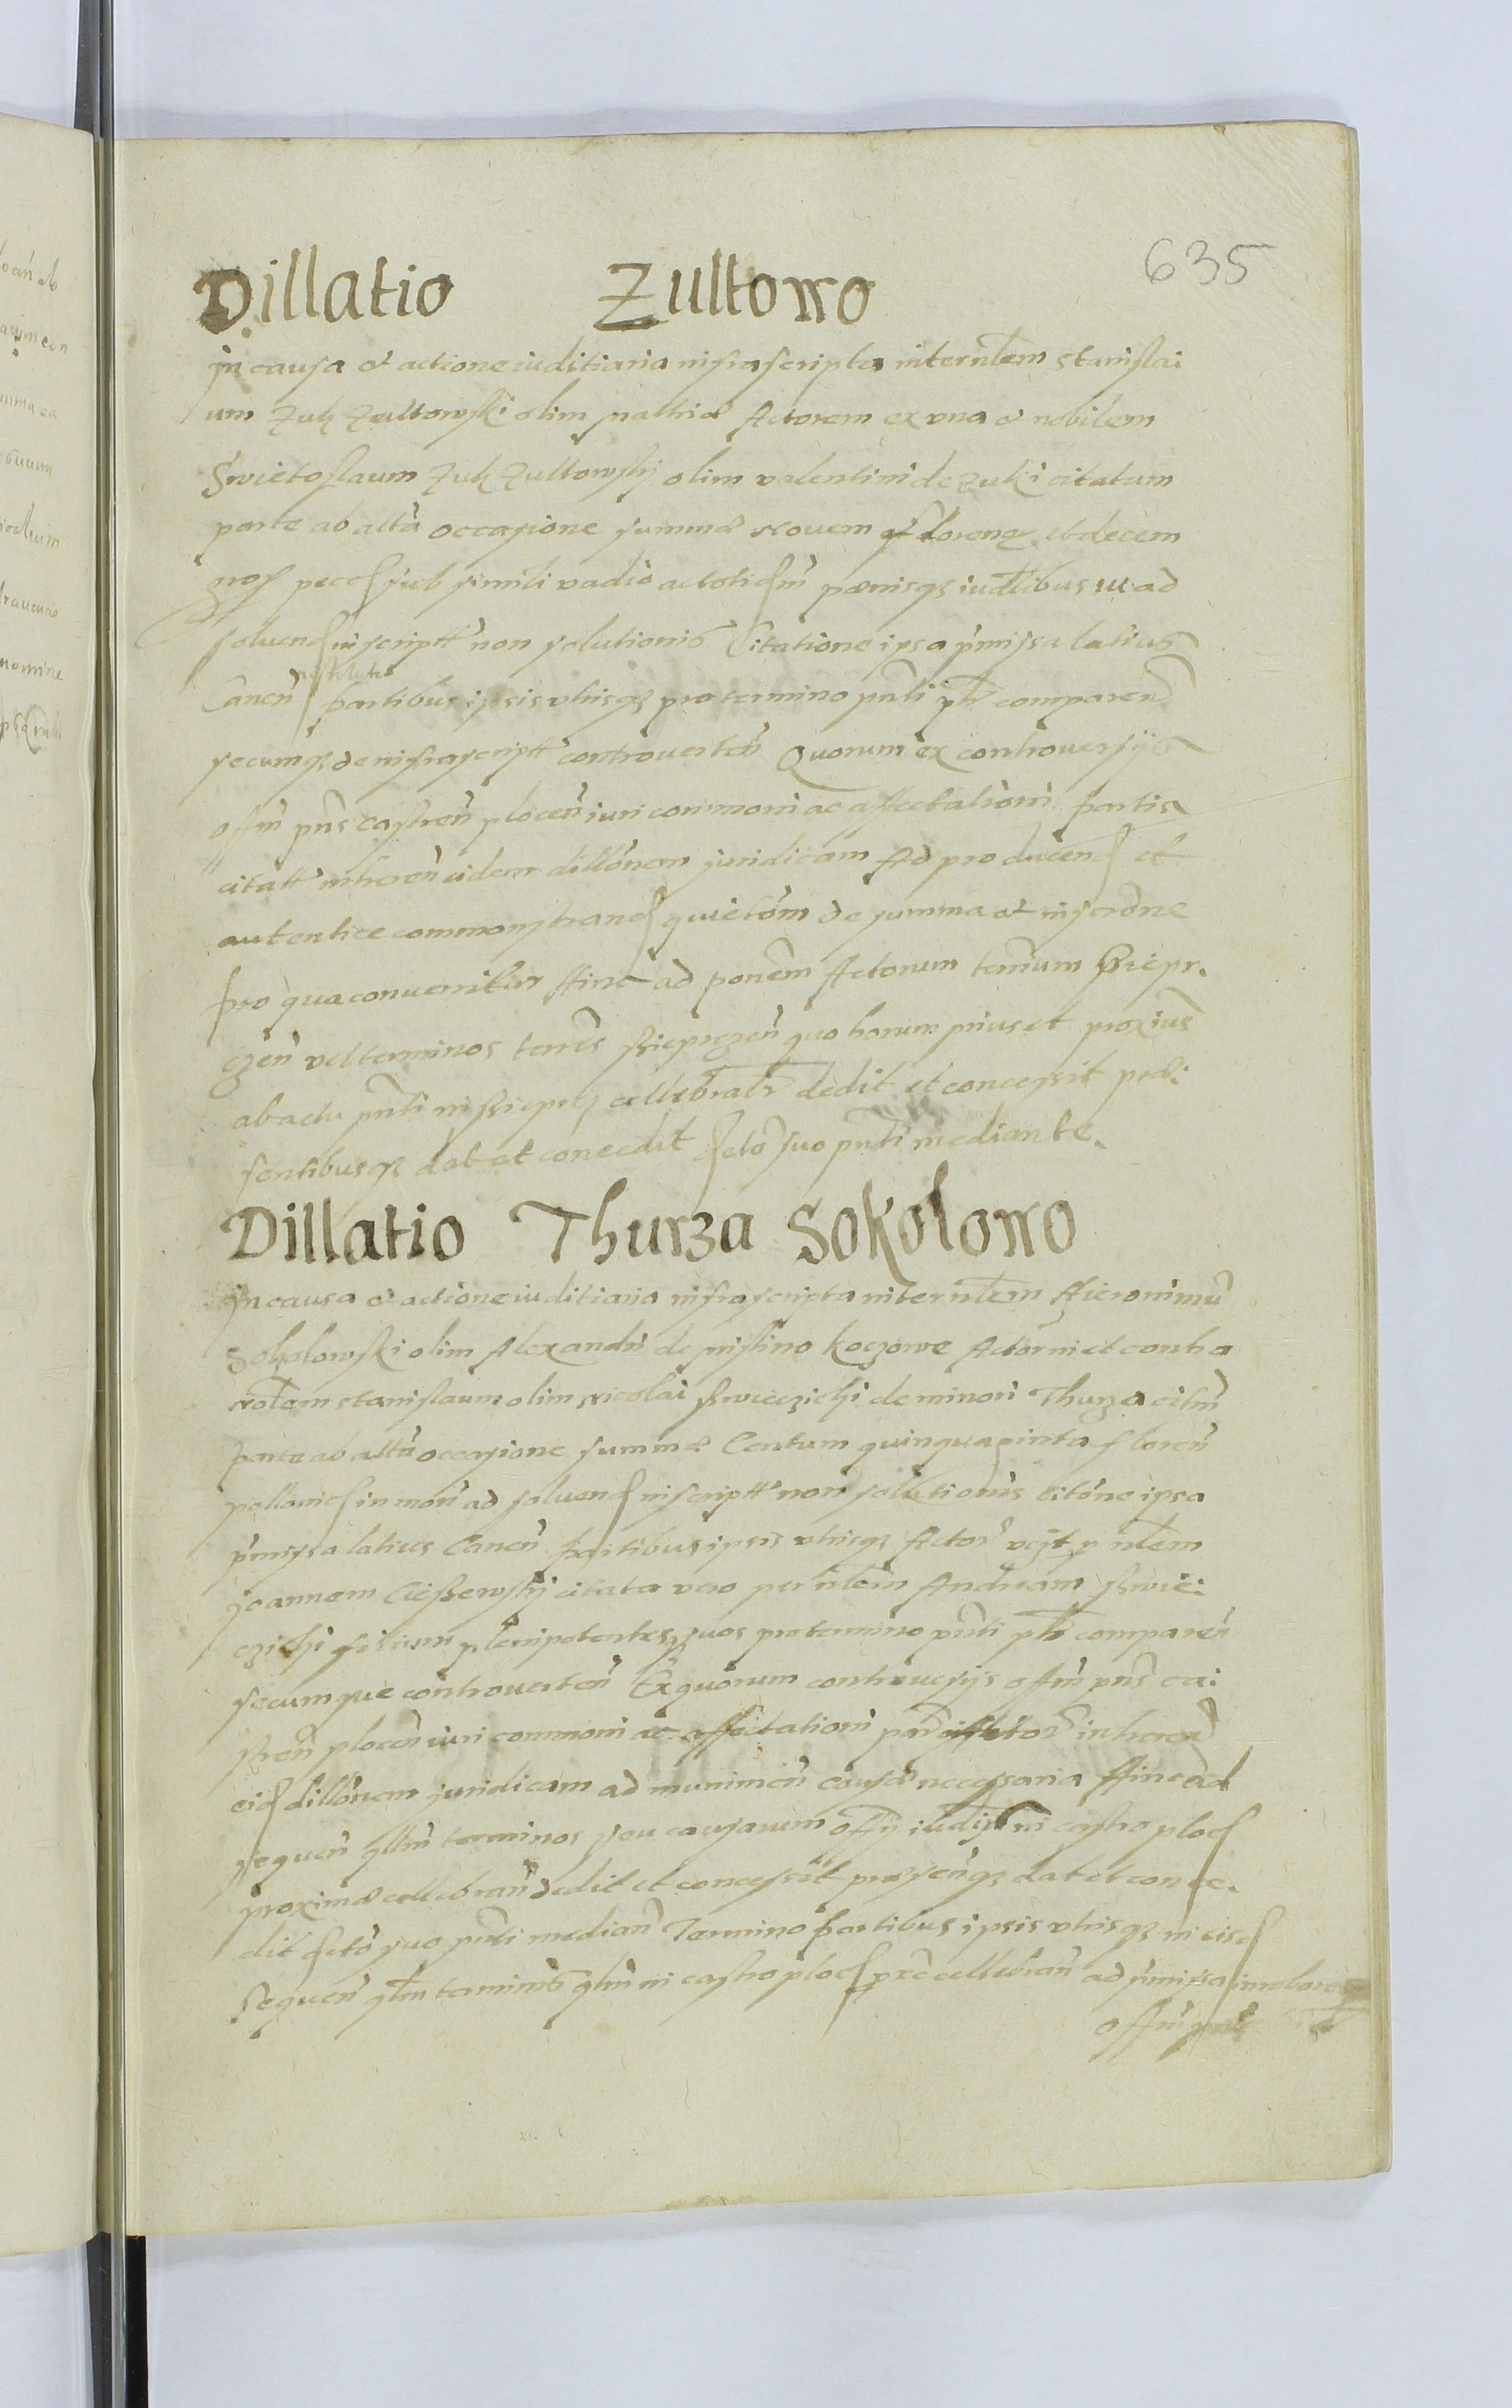 635
Dillatio Zultowo
In causa et actione iuditiaria infrascripta inter nblem Stanisla
um Zuk Zultowski olim Mathiæ Actorem ex vna et nobilem
Swietoslaum Zuk Zultowskij olim Valentini de Zuki citatum
parte ab altā occasione summæ Nouem florenor et decem
gros sub simili vadio ac pœnisq iudlibus
soluend inscriptt non solutionis Citatione ipsa pmissa latius
Canen partibus ipsis vtrisq pro termino pnti comparen
secumq de infrascriptt controuerten Quorum ex controuersijs
offm pns castren plocen iuri communi ac affectationi partis
citatt inheren eidem dillonem juridicam Ad producend et
autentice commonstrand quietom de summa et inscrone
pro qua conuenitur Hinc ad ponem Actorum
vel terminos terrēs quo horum prius et proxius
ab actu pnti in cellebrabr dedit et concessit præ:
sentibusq dat et concedit scto suo pnti mediante.
Dillatio Thurza Sokolowo
In causa et actione iuditiaria infrascripta inter nblem Hieronimū
Sokolowski olim Alexandri de Koczowe Actorem et contra
nblem Stanislaum olim Nicolai de minori Thurza citm
parte ab altā occasione summæ Centum quinquaginta floren
in mon ad soluend inscriptt non solutionis citone ipsa
pmissa latius Canen partibus ipsis vtrisq Actor p nblem
Joannem Cieszewskij citata vero per nblem Andream
filium plenipotentes suos pro termino pnti comparen
secumque controuerten Ex quorum controuersijs offm pns ca:
stren plocen iuri communi ac affectationi inheren
eid dillonem juridicam ad munimen causæ necessaria Hinc ad
sequen terminos seu causarum offij in castro ploc
proximæ cellebran dedit et concessit præsenq dat et conce.
dit scto suo pnti median Termino partibus ipsis vtrisq in eisd
sequen terminis in castro ploc cellebran ad pmissa
offm